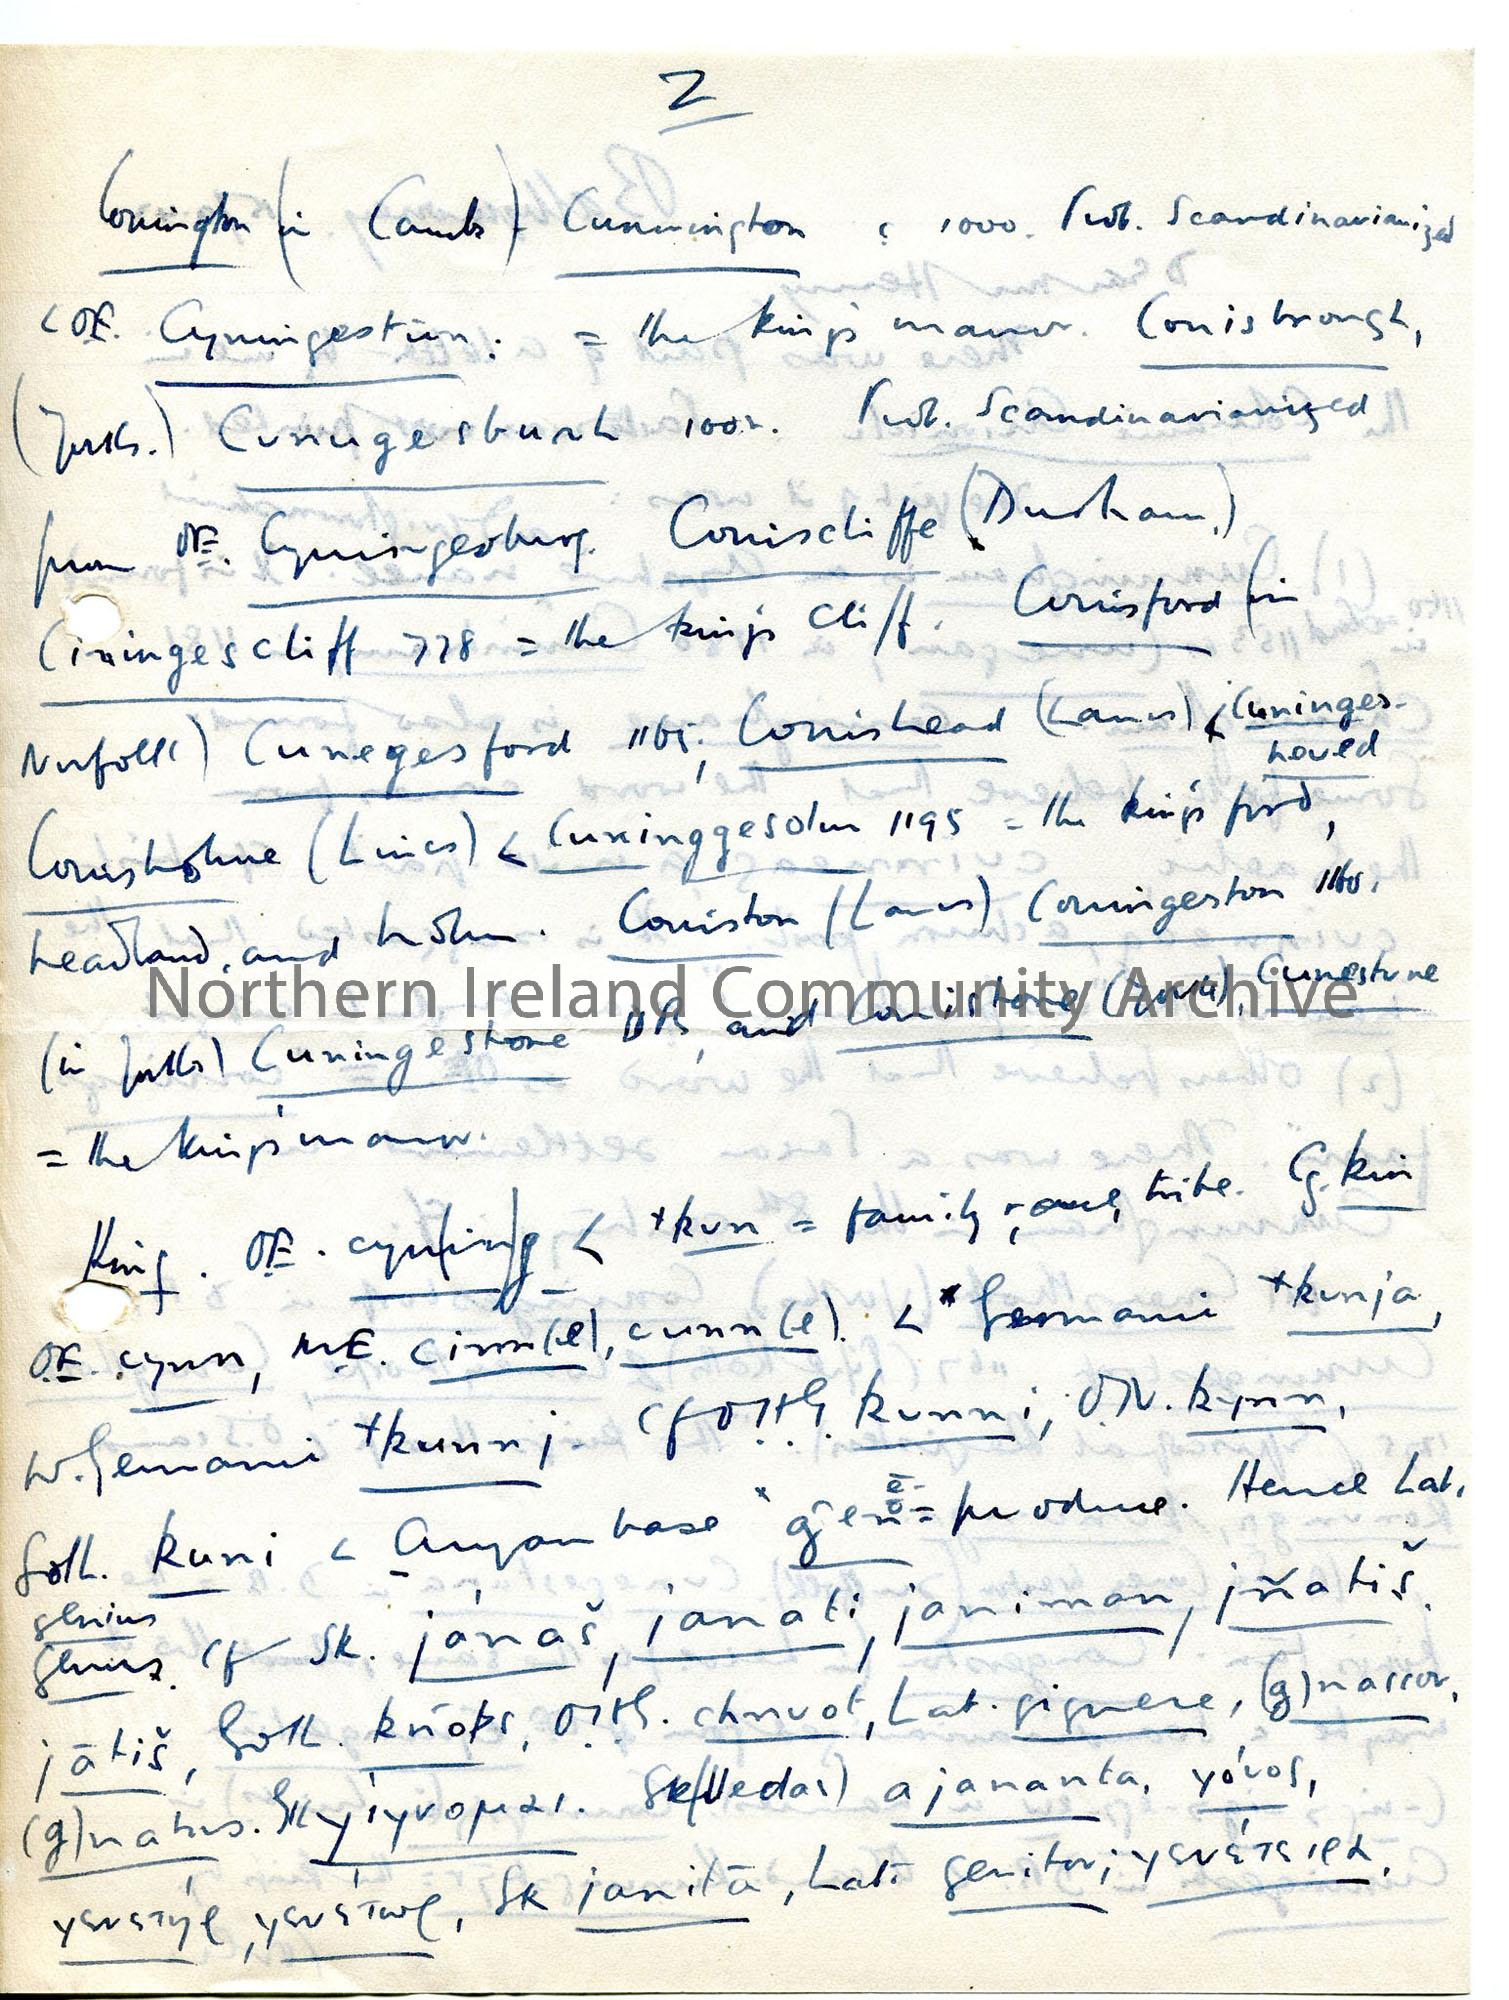 2
Conington (in Cambs) Cunnington c 1000. Prob. Scandinavianized
< OE. Cyningestūn: = the king's manor. Conisbrough,
(Yorks.) Cunugesburh 1002. Prob. Scandinavianized
from OE. Cyningesburg. Coniscliffe (Durham.)
Ciningescliff 778 = the king's cliff. Conisford (in
Norfolk) Cunegesford 1165; Conishead (Lancs) < Cuninges-
heved
Conisholme (Lincs) < Cuninggesolm 1195 = the king's ford,
headland, and holm. Coniston (Lancs) Coningeston 1160.
Northern Ireland Community Archive
(in Yorks) Cuningestone DB, and Conistone (Yorks), Cunestune
= the king's manor.
King. OE. cyn(in)g < *kun = family, race, tribe. Cg. kin
OE. cynn, ME. cinn(e), cunn(e). < Germanic *kunja,
W. Germanic *kunnj. Cf O.H.G. kunni, O.N. kynn,
Goth. kuni < Aryan base *gen = produce. Hence Lat.
genius
genus. cf Sk. jánaš, janati, janiman, jñatiš.
jātiš, Goth. knōþs, O.H.G. chnuot, Lat. gignere, (g)nascor,
(g)natus. Gk γίγνομαι. Sk (Vedas) ajananta, γόνος,
γενετήρ, γενέτωρ, Sk janitā, Lat. genitor; γενέτειρα,